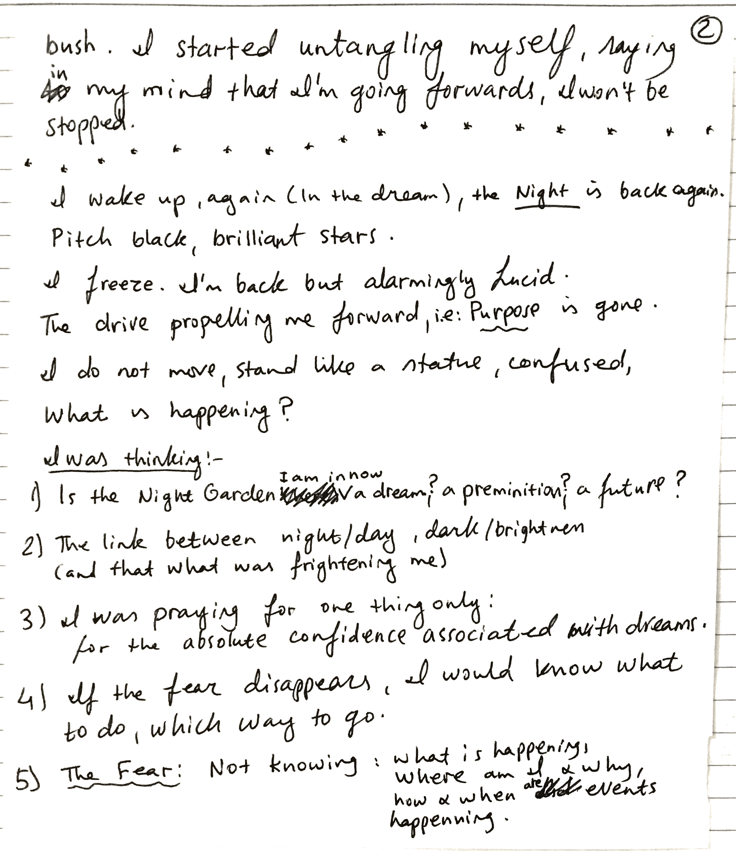 2
bush. I started untangling myself, saying
in my mind that I'm going forwards, I won't be
stopped.
* * * * * * * * * * * * * * *
I wake up, again (In the dream), the Night is back again.
Pitch black, brilliant stars.
I freeze. I'm back but alarmingly Lucid.
The drive propelling me forward, i.e: Purpose is gone.
I do not move, stand like a statue, confused,
What is happening?
I was thinking:-
1) Is the Night Garden I am in now a dream? a preminition? a future?
2) The link between night/day, dark/brightnen
(and that what was frightening me)
3) I was praying for one thing only:
for the absolute confidence associated with dreams.
4) If the fear disappears, I would know what
to do, which way to go.
5) The Fear: Not knowing: what is happening,
where am I & why,
how & when are events
happenning.